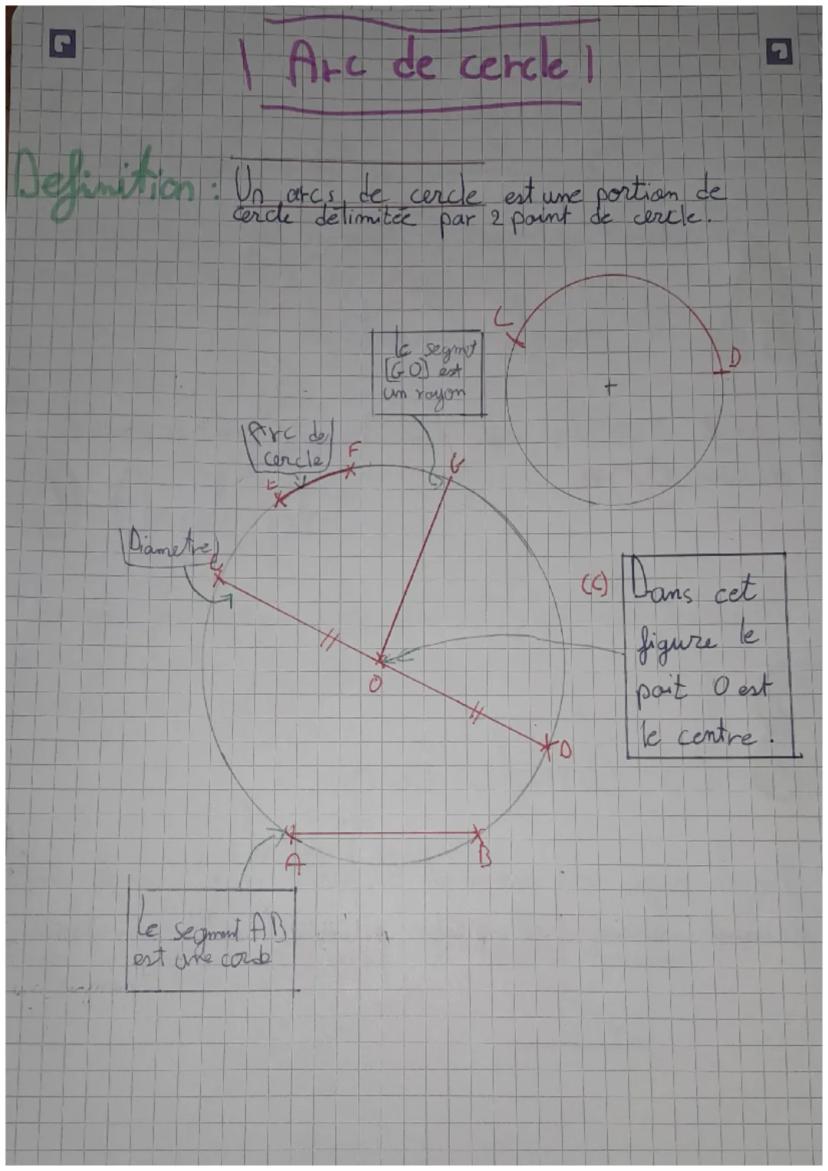 Arc de cercle
Definition : Un arcs de cercle est une portion de
cercle délimitée par 2 point de cercle.
C
D
Le segmt
[GO] est
un rayon
Arc de
cercle
F
E
G
Diametre
C
(C)
Dans cet
figure le
poit O est
le centre.
O
D
A
B
Le segment AB
est une corde